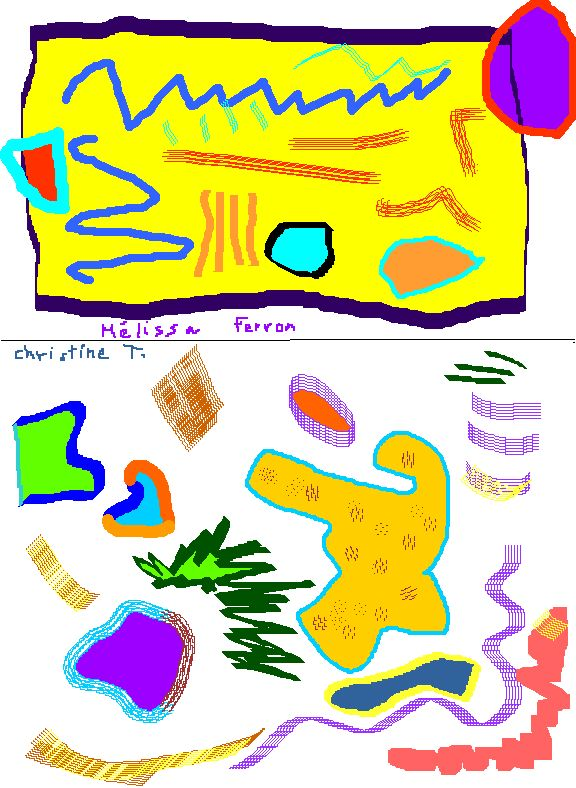 Mélissa Ferron
christine T.